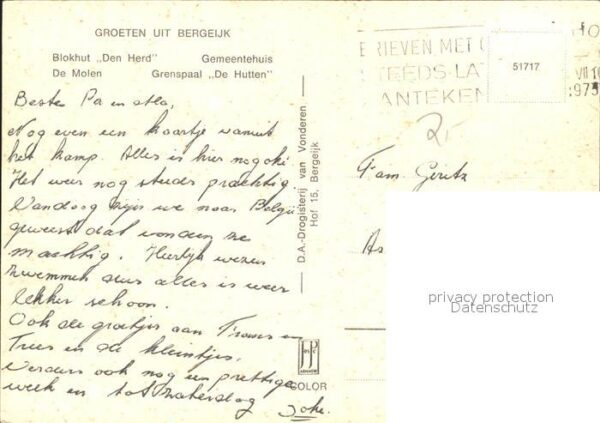 GROETEN UIT BERGEIJK
Blokhut „Den Herd" Gemeentehuis
De Molen Grenspaal „De Hutten"
Beste Pa en Ma,
Nog even een kaartje vanuit
het kamp. Alles is hier nog oké
Het weer nog steeds prachtig
Vandaag zijn we naar België
geweest dat vonden ze
machtig. Heerlijk wezen
zwemmen dus alles is weer
lekker schoon.
Ook de groetjes aan Frans en
Trees en de kleintjes.
Verders ook nog een prettige
week en tot zaterdag
Joke.
D.A.-Drogisterij van Vonderen
Hof 15, Bergeijk
COLOR
BRIEVEN MET
STEEDS-LA
ANTEKEN
51717
VII 10
1973
Fam. Geritz
privacy protection
Datenschutz